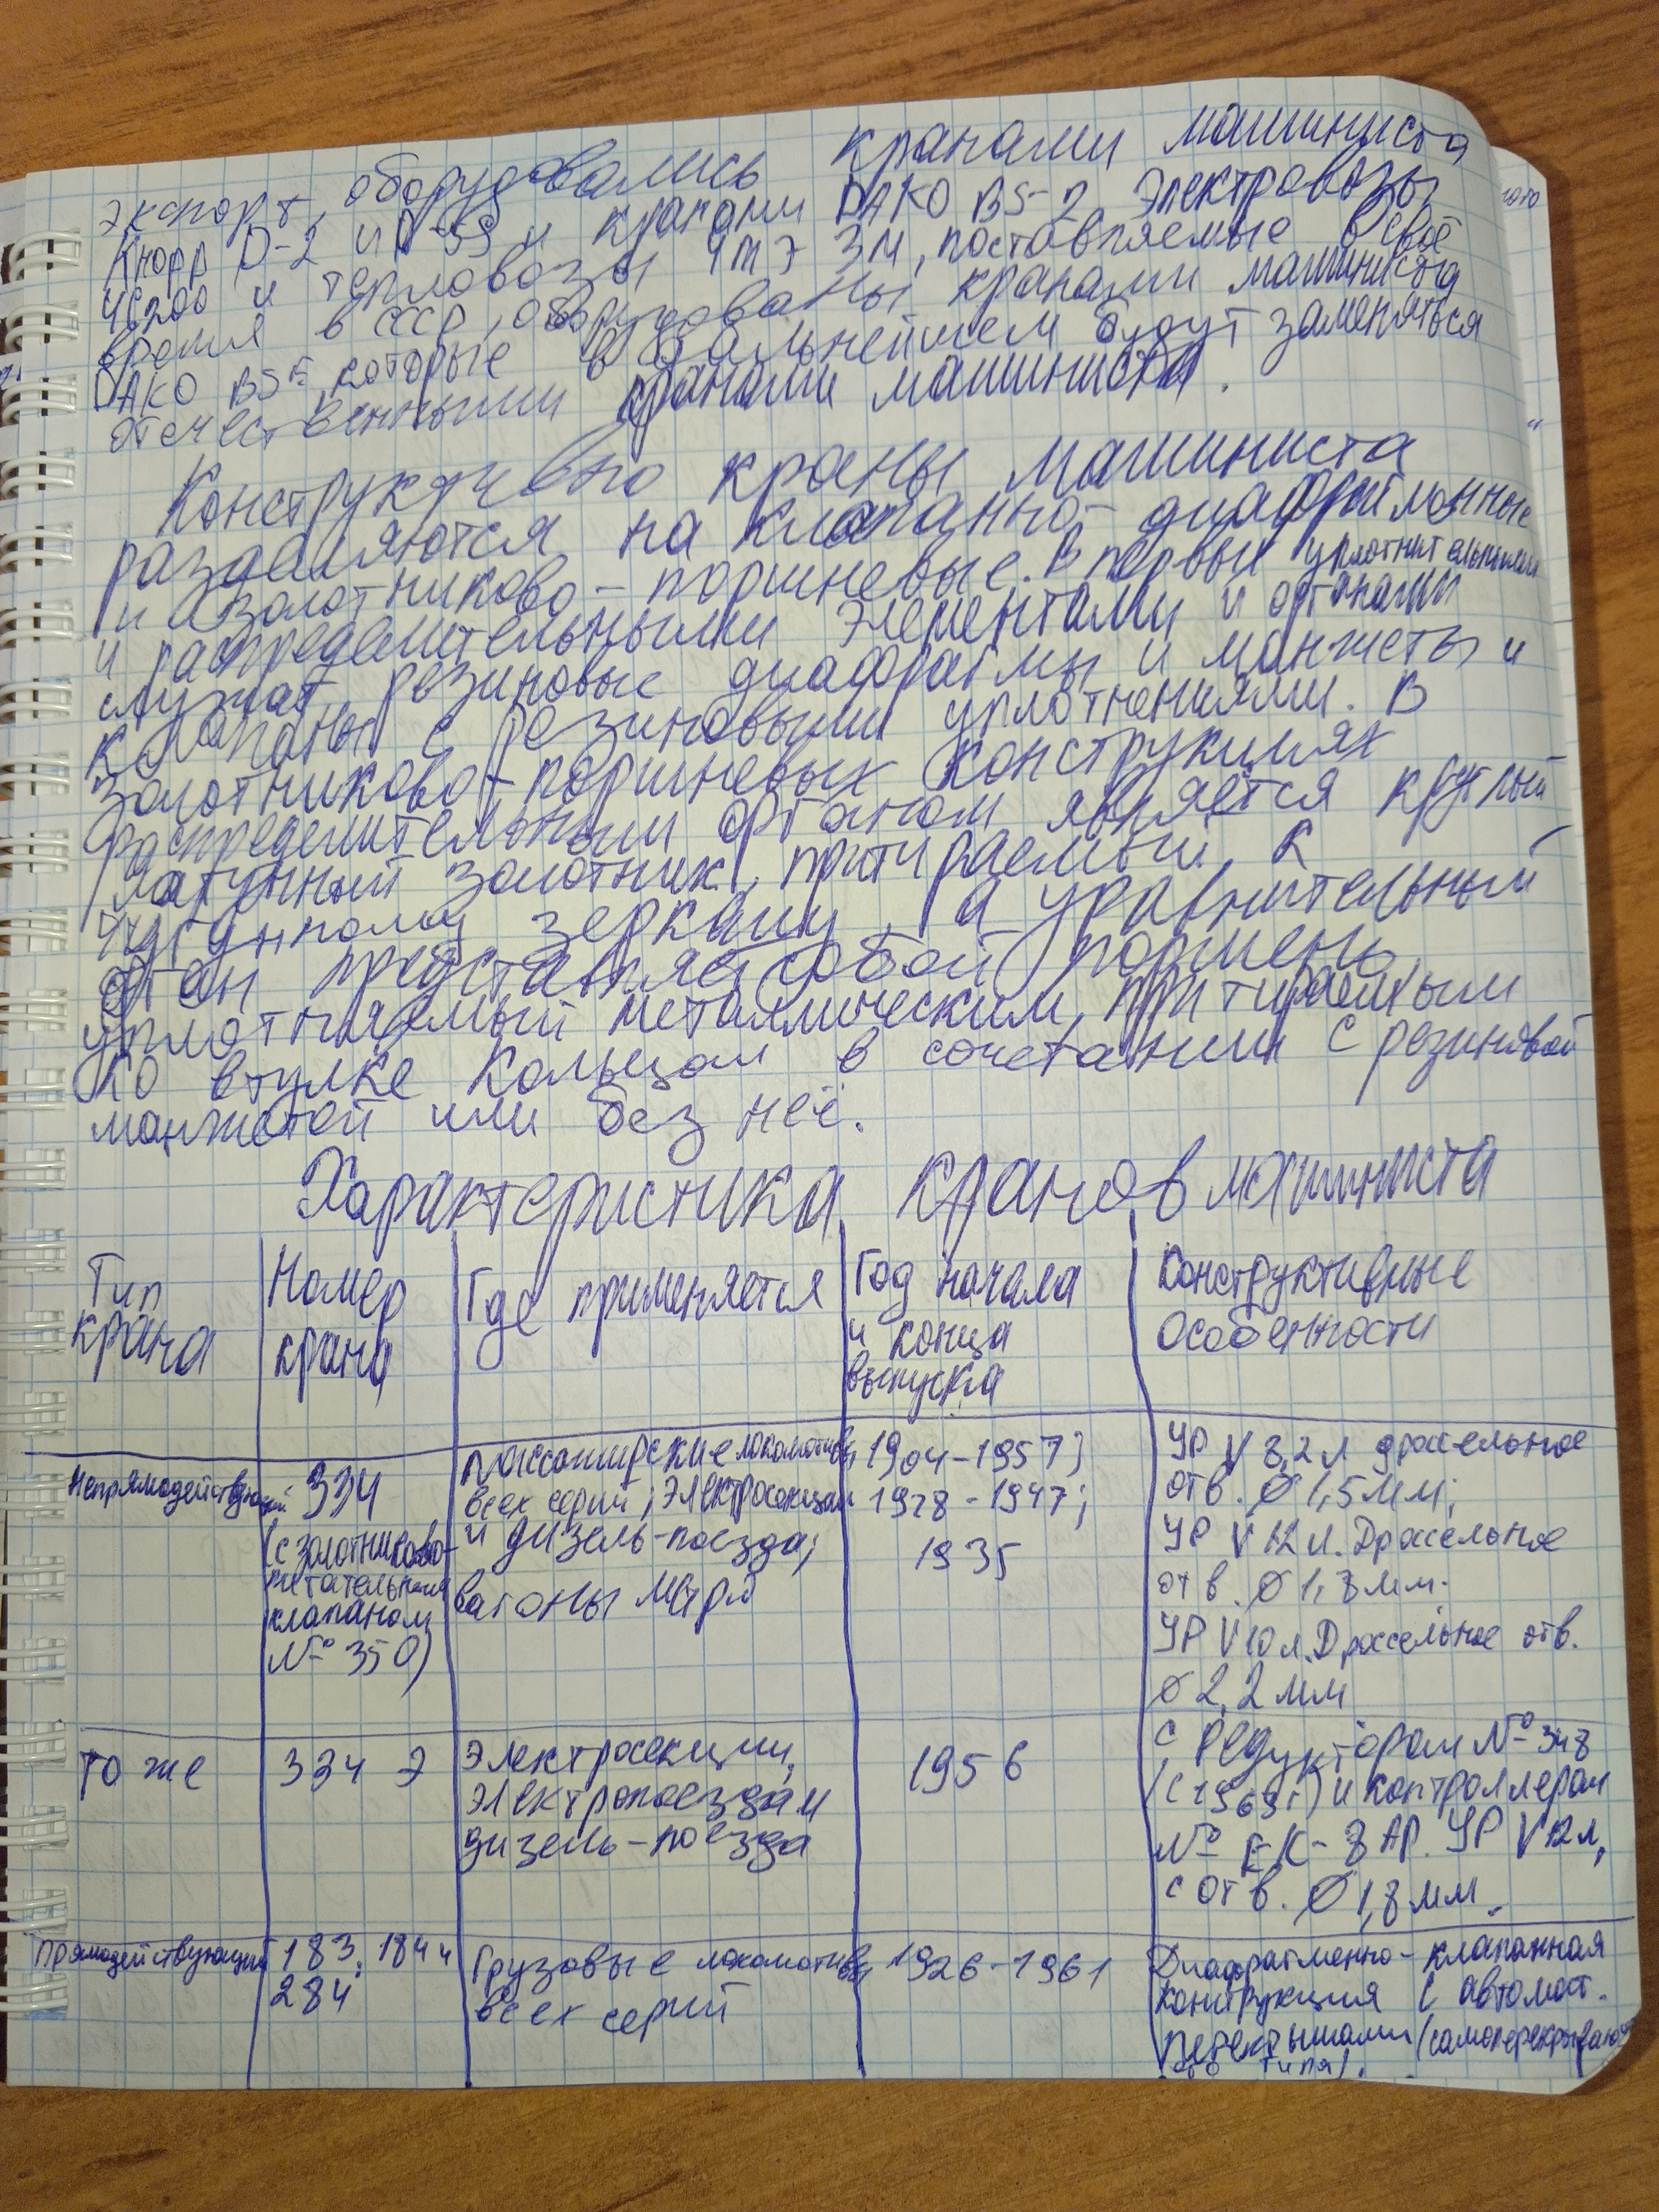 экспорт, оборудовались кранами машиниста
Кнорр D-2 и кранами DAKO BS-2. Электровозы
ЧС200 и тепловозы ЧМЭ 3М, поставляемые в своё
время в СССР, оборудованы кранами машиниста
DAKO BS которые в дальнейшем будут заменяться
отечественными кранами машиниста.
Конструктивно краны машиниста
разделяются на клапанно-диафрагмонные
и золотниково-поршневые. В первых уплотнительными
и распределительными элементами и органами
служат резиновые диафрагмы и манжеты и
клапаны с резиновыми уплотнениями. В
золотниково-поршневых конструкциях
распределительным органом является круглый
латунный золотник, притираемый к
чугунному зеркалу, а уравнительный
орган представляет собой поршень,
уплотняемый металлическим, притираемым
ко втулке кольцом в сочетании с резиновой
манжетой или без неё.
Характеристика кранов машиниста
Тип крана
Номер крана
Где применяется
Год начала
и конца
выпуска
Конструктивные
особенности
Непрямодействующий
334
(с золотниково-
питательным
клапаном
№ 350)
пассажирские локомотивы
всех серий; электросекции
и дизель-поезда;
вагоны метро
1904-1957;
1928-1947;
1935
УР V 8,2л дроссельное
отв. Ø 1,5мм;
УР V 12 л. Дроссельное
отв. Ø 1,8мм.
УР V 10 л. Дроссельное отв.
Ø 2,2 мм
то же
334 Э
Электросекции,
электропоезда и
дизель-поезда
1956
с редуктором № 348
(с 1969г) и контроллером
№ ЕК-8 АР. УР V 12л,
с отв. Ø 1,8 мм.
Прямодействующий
183, 184 и
284
Грузовые локомотивы
всех серий
1926-1961
Диафрагменно-клапанная
конструкция с автомат.
перекрышами (самоперекрывающе
го типа).